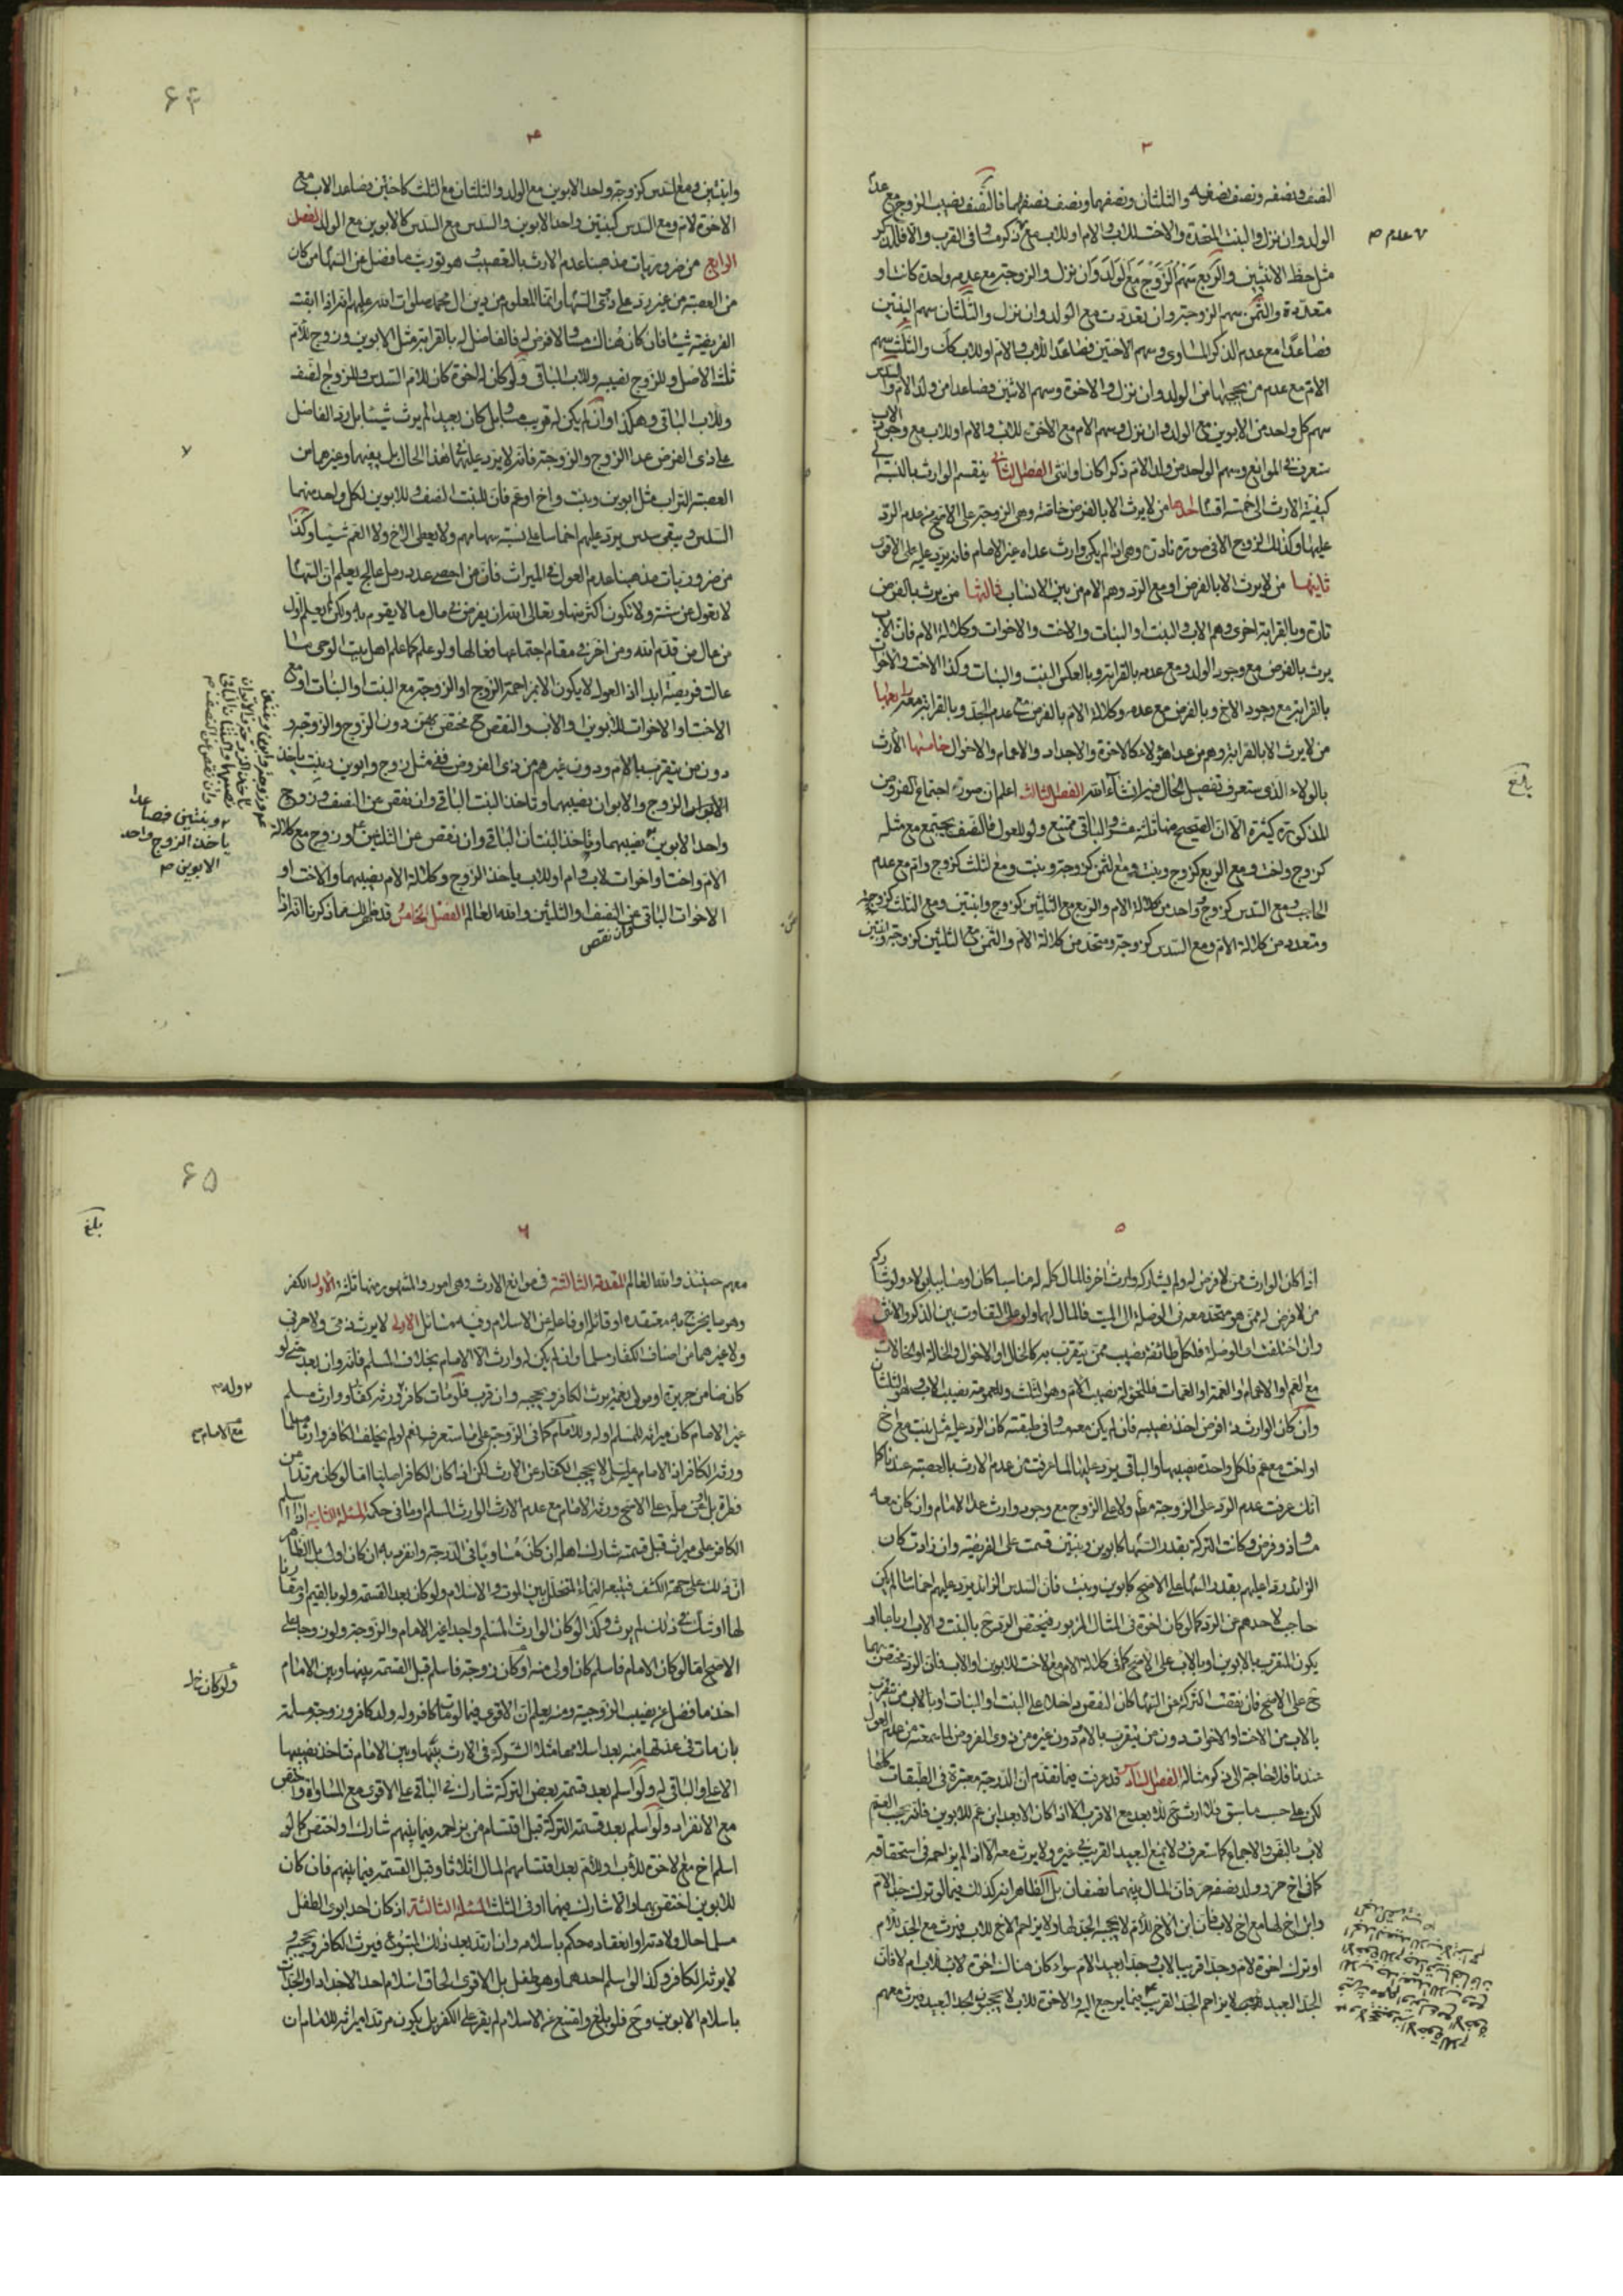 ٣
النصف ونصفه ونصف نصفه والثلثان ونصفهما ونصف نصفهما فالنصف نصيب الزوج مع عدم
الولد وان نزل والبنت المتحدة والاخت للاب والام او للاب مع ذكر مساو في القرب والا فللذكر
مثل حظ الانثيين والربع سهم الزوج مع الولد وان نزل والزوجة مع عدمه واحدة كانت او
متعددة والثمن سهم الزوجة وان تعددت مع الولد وان نزل والثلثان سهم البنتين
فصاعدا مع عدم الذكر المساوي وسهم الاختين فصاعدا للاب والام او للاب كذلك والثلث سهم
الام مع عدم من يحجبها من الولد وان نزل والاخوة وسهم الاثنين فصاعدا من ولد الام والسدس
سهم كل واحد من الابوين مع الولد وان نزل وسهم الام مع الاخوة للاب والام او للاب مع وجود الاب
ستعرف في الموانع وسهم الواحد من ولد الام ذكرا كان او انثى الفصل الثاني ينقسم الوارث بالنسبة الى
كيفية الارث الى خمسة اقسام احدها من لا يرث الا بالفرض خاصة وهي الزوجة على الاصح من عدم الرد
عليها وكذلك الزوج الا في صورة نادرة وهي اذا لم يكن وارث عداه غير الامام فانه يرد عليه على الاقوى
ثانيها من لا يرث الا بالفرض او مع الرد وهم الام من بين الانساب ثالثها من يرث بالفرض
تارة وبالقرابة اخرى وهم الاب والبنت او البنات والاخت والاخوات وكلالة الام فان الاب
يرث بالفرض مع وجود الولد ومع عدمه بالقرابة وبالعكس البنت والبنات وكذا الاخت والاخوات
بالقرابة مع وجود الاخ وبالفرض مع عدمه وكلالة الام بالفرض مع عدم الجد وبالقرابة معه رابعها
من لا يرث الا بالقرابة وهم من عدا هؤلاء كالاخوة والاجداد والاعمام والاخوال خامسها الارث
بالولاء الذي ستعرف تفصيل الحال فيه انشاء الله الفصل الثالث اعلم ان صورة اجتماع الفروض
المذكورة كثيرة الا ان الصحيح منها ثلثة عشر والباقي ممتنع ولو للعول فالنصف يجتمع مع مثله
كزوج واخت ومع الربع كزوج وبنت ومع الثمن كزوجة وبنت ومع الثلث كزوج وام مع عدم
الحاجب ومع السدس كزوج وواحد من كلالة الام والربع مع الثلثين كزوج وابنتين ومع الثلث كزوجة
ومتعدد من كلالة الام ومع السدس كزوجة ومتحد من كلالة الام والثمن مع الثلثين كزوجة وابنتين
عدم
بلغ
۶۴
٤
وابنتين ومع السدس كزوجة واحد الابوين مع الولد والثلثان مع الثلث كاختين فصاعدا لاب مع
الاخوة لام ومع السدس كبنتين واحد الابوين والسدس مع السدس كالابوين مع الولد الفصل
الرابع من ضروريات مذهبنا عدم الارث بالتعصيب وهو توريث ما فضل عن السهام من كان
من العصبة من غير رد على ذوي السهام وانما المعلوم من دين ال محمد صلوات الله عليهم انه اذا ابقت
الفريضة شيئا فان كان هناك مساو لا فرض له فالفاضل له بالقرابة مثل الابوين وزوج للام
ثلث الاصل وللزوج نصيبه وللاب الباقي ولو كان له اخوة كان للام السدس وللزوج النصف
وللاب الباقي وهكذا وان لم يكن له قريب مساو بل كان بعيدا لم يرث شيئا بل رد الفاضل
على ذي الفرض عدا الزوج والزوجة فانه لا يرد عليهما في هذا الحال بل بينهما وغيرهما من
العصبة التراب مثل ابوين وبنت واخ او عم فان للبنت النصف وللابوين لكل واحد منهما
السدس ويبقى سدس يرد عليهم اخماسا على نسبة سهامهم ولا يعطى الاخ ولا العم شيئا وكذا
من ضروريات مذهبنا عدم العول في الميراث فان من احصى عدد رمل عالج يعلم ان السهام
لا تعول عن ستة ولا تكون اكثر منها وتعالى الله ان يفرض في مال ما لا يقوم به ولكن يعلم اول
من عال من قدم الله ومن اخره في مقام اجتماعها فعالها ولو علم كما علم اهل بيت الوحي ما
عالت فريضة ابدا اذ العول لا يكون الا بمزاحمة الزوج او الزوجة مع البنت او البنات او مع
الاخت او الاخوات للابوين او الاب والنقص ح مختص بهن دون الزوج والزوجة و
دون من يتقرب بالام ودون غيرهم من ذوي الفروض ففي مثل زوج وابوين وبنت ياخذ
الزوج والابوان نصيبهما وتاخذ البنت الباقي وان نقص عن النصف وزوج
واحد الابوين نصيبهما وتاخذ البنتان الباقي وان نقص عن الثلثين وزوج مع كلالة
الام واخت او اخوات لاب وام او للاب ياخذ الزوج وكلالة الام نصيبهما والاخت او
الاخوات الباقي وان نقص عن النصف او الثلثين والله العالم الفصل الخامس قد ظهر لك مما ذكرنا انه اذا
وبنتين فصاعدا
ياخذ الزوج واحد
الابوين
٥
اذا كان الوارث ممن لا فرض له ولم يشاركه وارث اخر فالمال كله له مناسبا كان او مسابيا بولاء ولو شاركه
من لا فرض له ممن هو متحد معه في الوصلة الى الميت فالمال لهما ولو على التفاوت بين الذكر والانثى
وان اختلفت الوصلة فلكل طائفة نصيب من يتقرب به كالخال او الاخوال والخالة او الخالات
مع العم او الاعمام او العمة او العمات فللخؤلة نصيب الام وهو الثلث وللعمومة نصيب الاب وهو الثلثان
وان كان الوارث ذا فرض اخذ نصيبه فان لم يكن معه مساو في طبقته كان الرد عليه مثل بنت مع اخ
او اخت مع عم فلكل واحدة نصيبهما والباقي يرد عليها لما عرفت من عدم الارث بالعصبة عندنا كما
انك عرفت عدم الرد على الزوجة مطلقا ولا على الزوج مع وجود وارث عدا الامام وان كان معه
مساو ذو فرض وكانت التركة بقدر السهام كابوين وبنتين قسمت على الفريضة وان زادت كان
الزائد ردا عليهم بقدر السهام على الاصح كابوين وبنت فان السدس الزائد يرد عليهم اخماسا ما لم يكن
حاجب لاحدهم عن الرد كما لو كان اخوة في المثال المزبور فيختص الرد ح بالبنت والاب ارباعا او
يكون المتقرب بالابوين او بالاب على الاصح كما في كلالة الام مع الاخت للابوين او الاب فان الرد مختص بهما
ح على الاصح فان نقصت التركة عن السهام كان النقص داخلا على البنت او البنات او بالاب من يتقرب
بالاب من الاخت او الاخوات دون من يتقرب بالام ودون غيره من ذوي الفروض لما سمعته من عدم العول
عندنا فلا حاجة الى ذكر مثاله الفصل السادس قد عرفت فيما تقدم ان الدرجة معتبرة في الطبقات كلها
لكن على حسب ما سبق فلا ارث ح للابعد مع الاقرب الا اذا كان الابعد ابن عم للابوين فانه يحجب العم
لاب بالنص والاجماع كما ستعرف ولا يمنع البعيد القريب في غيره ولا يرث معه الا اذا لم يزاحمه في استحقاقه
كما في اخ حر وولد نصفه حر فان المال بينهما نصفان بل الظاهر انه كذلك فيما لو ترك جد الام
وابن اخ لها مع اخ لاب فان ابن الاخ للام لا يحجبه الجد لها ولا يزاحم الاخ للاب فيرث مع الجد للام
او ترك اخوة لام وجدا قريبا لاب وجدا بعيدا لام سواء كان هناك اخوة لاب ام لا فان
الجد البعيد لا يزاحم الجد القريب فيما يرجع اليه والاخوة للاب لا يحجبون الجد البعيد فيرث معهم
۶۵
بلغ
٦
معهم حينئذ والله العالم المقدمة الثالثة في موانع الارث وهي امور والمشهور منها ثلثة الاول الكفر
وهو ما يخرج به معتقده او قائله او فاعله عن الاسلام وفيه مسائل الاولى لا يرث ذمي ولا حربي
ولا غيرهما من اصناف الكفار مسلما وان لم يكن له وارث الا الامام بخلاف المسلم فانه وان بعد حتى لو
كان ضامن جريرة او مولى نعمة يرث الكافر ويحجبه وان قرب فلو مات كافر وله ورثة كفار ووارث مسلم
غير الامام كان ميراثه للمسلم ولو وللامام كما في الزوجة على ما ستعرف نعم لو لم يخلف الكافر وارثا مسلما
ورثه الكافر اذ الامام مسلم لا يحجب الكفار عن الارث لكن اذا كان الكافر اصليا اما لو كان مرتدا عن
فطرة بل وعن ملة على الاصح ورثه الامام مع عدم الارث الوارث المسلم او ما في حكمه المسئلة الثانية اذا اسلم
الكافر على ميراث قبل قسمته شارك اهله ان كان مساويا في الدرجة وانفرد به ان كان اولى بل الظاهر
ان ذلك على جهة الكشف فيتبعه النماء المتخلل بين الموت والاسلام ولو كان بعد القسمة ولو بالقيم او مقارنا
لها او شك في ذلك لم يرث وكذا لو كان الوارث المسلم واحدا غير الامام والزوجة ولو زوجا على
الاصح اما لو كان الامام فاسلم كان اولى منه او كان زوجة فاسلم قبل القسمة بينها وبين الامام
اخذ ما فضل عن نصيب الزوجية ومنه يعلم ان الاقوى فيما لو مات كافر وله ولد كافر وزوجة مسلمة
بان مات في عدتها منه بعد اسلامها مثلا الشركة في الارث بينها وبين الامام فتاخذ نصيبها
الاعلى والباقي له ولو اسلم بعد قسمة بعض التركة شارك في الباقي على الاقوى مع المساواة واختص
مع الانفراد ولو اسلم بعد قسمة التركة قبل اقتسام من يزاحمه فيما بينهم شارك او اختص كما لو
اسلم اخ مع الاخوة للاب وللام بعد اقتسامهم المال اثلاثا وقبل القسمة فيما بينهم فان كان
للابوين اختص بهما والا شارك فيهما او في الثلث المسئلة الثالثة اذ كان احد ابوي الطفل
مسلما حال ولادته او انعقاده حكم باسلامه وان ارتد بعد ذلك المتبوع فيرث الكافر ويحجبه و
لا يرثه الكافر وكذا لو اسلم احدهما وهو طفل بل الاقوى الحاق اسلام احد الاجداد او الجدات
باسلام الابوين وح فلو بلغ وامتنع عن الاسلام لم يقر على الكفر بل يكون مرتدا ميراثه للامام ان
وله
مع الامام
ولو كان